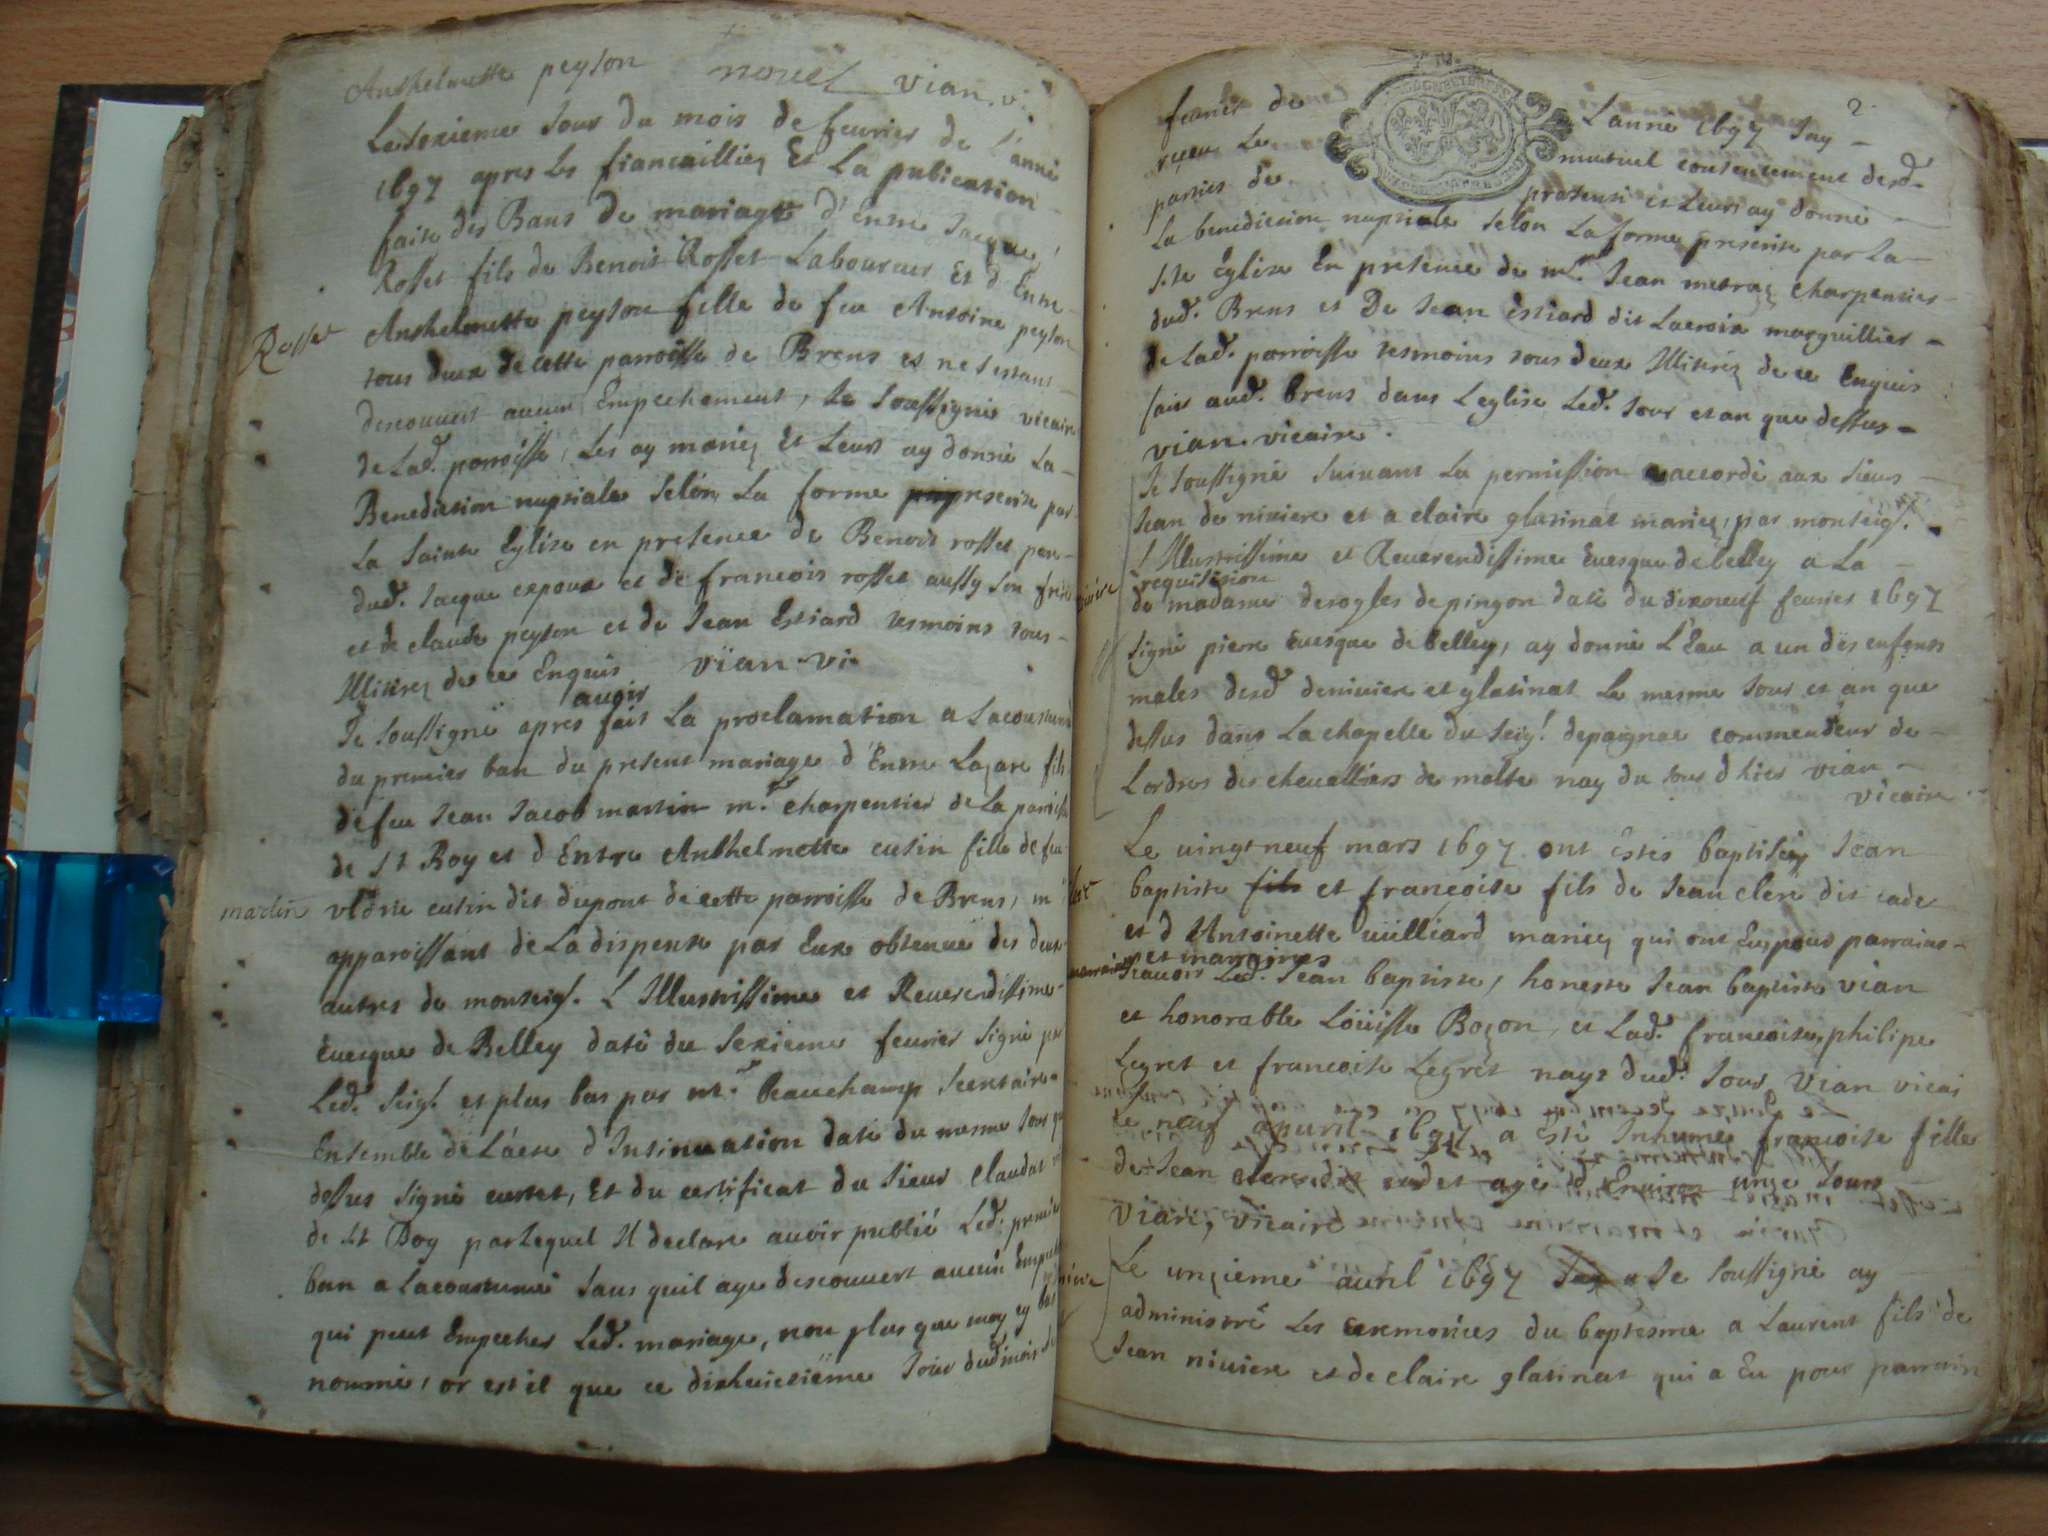 Anthelmette peyson nouel vian. vi.
Le sexieme Jour du mois de feurier de l'anné
1697 apres les fiancailliez Et La publication
faite des Bans de mariage d'Entre Jacque
Rosset fils de Benoit Rosset Laboureur Et d'Entre
Rosset
Anthelmette peyson fille de feu Antoine peyson
tous deux de cette parroisse de Brens et ne s'estant
descouuert aucun Empechement, Je soussigné vicaire
de Lad. parroisse, Les ay mariez Et Leurs ay donné La
Benediction nuptiale selon La forme prescrite par
La Sainte Eglise en presence de Benoit rosset pere
dud. Jacque expoux et de francois rosset aussy son frere
et de claude peyson et de Jean Estiard tesmoins tous
Illitérez de ce Enquis vian. vi.
avoir
Je soussigné apres fait La proclamation a Lacoustumé
du premier ban du present mariage d'Entre Lazare fils
de feu Jean Jacob martin m.e charpentier de La parroisse
de St Boy et d'Entre Anthelmette cutin fille de feu
martin
cutin dit dupont de cette parroisse de Brens,
apparoissant de La dispense par Eux obtenuë des deux
autres de monseig.r L'Illustrissime et Reuerendissime
Euesque de Belley daté du sexieme feurier signé par
Led. seig.r et plus bas par m.r Beauchamp secretaire
Ensemble de L'acte d'Insinuation daté du mesme Jour que
dessus signé curtet, Et du certificat du sieur Claudat
de St Boy par Lequel Il declare auoir publié Led. premier
ban a Lacoustumé sans quil aye descouuert aucun
qui peut Empecher Led. mariage, non plus que moy cy bas
nommé, or est il que ce dixhuictieme Jour dud. mois de
2
feurier de L'anné 1697 J'ay
receu Le mutuel consentement desd.
parties de presenti et Leurs ay donné
La benediction nuptiale selon La forme prescrite par La
S.te Eglise En presence de m.e Jean metraz charpentier
dud. Brens et De Jean Estiard dit Lacroix marguillier
de Lad. parroisse tesmoins tous deux Illitérez de ce Enquis
fait aud. brens dans L'eglise Led. Jour et an que dessus
vian. vicaire.
Je soussigné suiuant La permission accordé aux sieurs
Jean de niuiere et a claire glatinat mariez, par monseig.r
L'Illustrissime et Reuerendissime Euesque de belley a La
requisition
de madame de pingon daté du dixneuf feurier 1697
signé pierre Euesque de belley, ay donné L'Eau a un des enfents
males desd. deniuiere et glatinat Le mesme Jour et an que
dessus dans La chapelle du seig.r commendeur de
Lordres des cheualliers de malte nay du Jour d'hier vian
vicaire
Le uingt neuf mars 1697 ont Estés baptisez Jean
baptiste fils et francoise fils de Jean clerc dit cadet
et d'Antoinette uuilliard mariez qui ont Eu pour parrains
et marraines
scauoir Led. Jean baptiste, honeste Jean baptiste vian
et honorable Loüisse Bozon, et Lad. francoise, philipe
Legret et francoise Legret nays dud. Jour vian vicai
Le neuf apuril 1697 a Esté Inhumé francoise fille
de Jean clerc dit cadet agé d'Enuiron unze Jours
vian, vicaire
Le unzieme auril 1697 Je soussigné ay
administré Les ceremonies du baptesme a Laurent fils de
Jean niuiere et de claire glatinat qui a Eu pour parrain